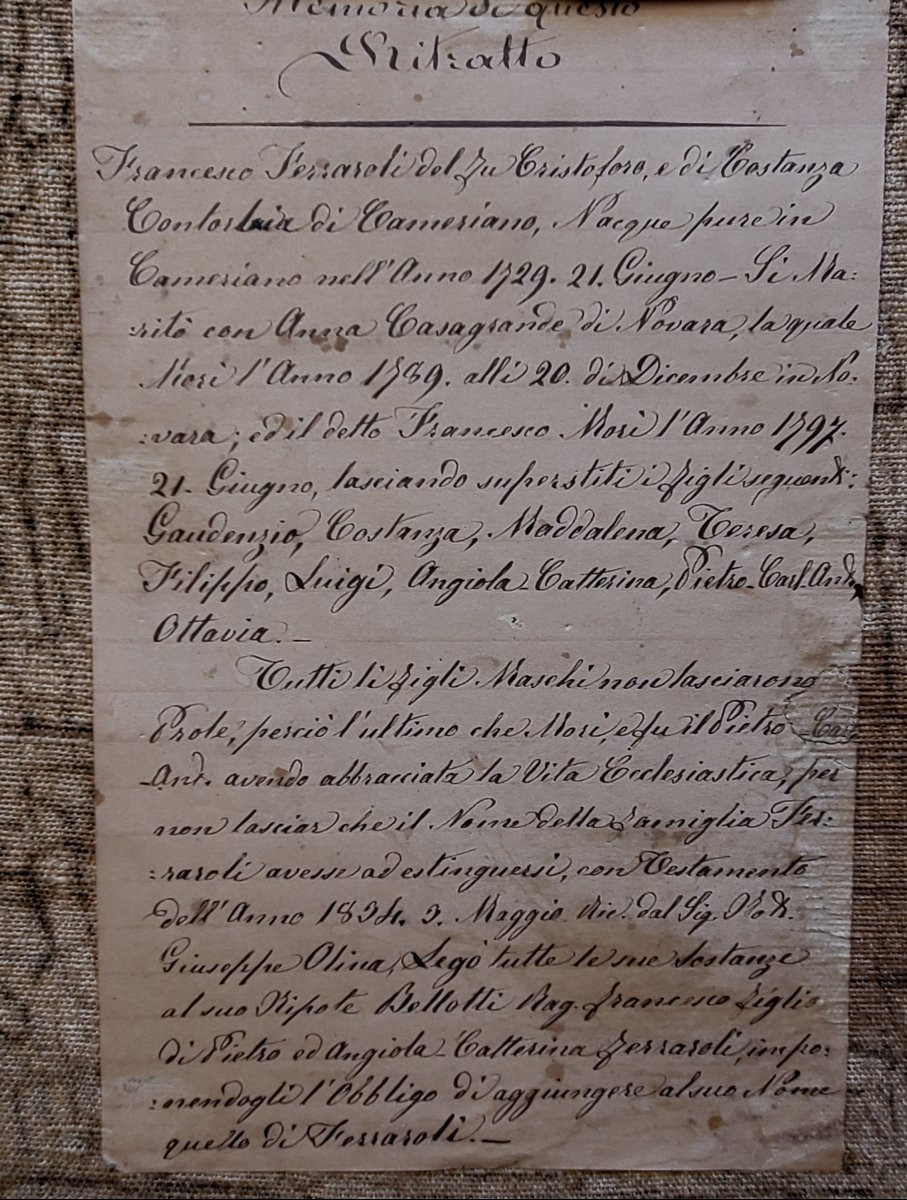 Memoria di questo
Ritratto
Francesco Ferraroli del fu Cristoforo, e di Costanza
di Cameriano, Nacque pure in
Cameriano nell'Anno 1729. 21. Giugno - Si Ma:
:ritò con Anna Casagrande di Novara, la quale
Morì l'Anno 1789. alli 20. di Dicembre in No:
:vara; ed il detto Francesco Morì l'Anno 1797.
21. Giugno, lasciando superstiti i figli seguenti:
Gaudenzio, Costanza, Maddalena, Teresa,
Filippo, Luigi, Angiola-Catterina, Pietro-Carl-Ant.
Ottavia. -
Tutti li figli Maschi non lasciarono
Prole, perciò l'ultimo che Morì, e fu il Pietro-Carl
-Ant. avendo abbracciata la Vita Ecclesiastica, per
non lasciar che il Nome della famiglia Fer:
:raroli avesse ad estinguersi, con Testamento
dell'Anno 1834. 3. Maggio Ric. dal Sig. Not.
Giuseppe Olina, Legò tutte le sue sostanze
al suo Nipote Bellotti Rag. Francesco figlio
di Pietro ed Angiola-Catterina Ferraroli, impo:
:nendogli l'Obbligo di aggiungere al suo Nome
quello di Ferraroli. -